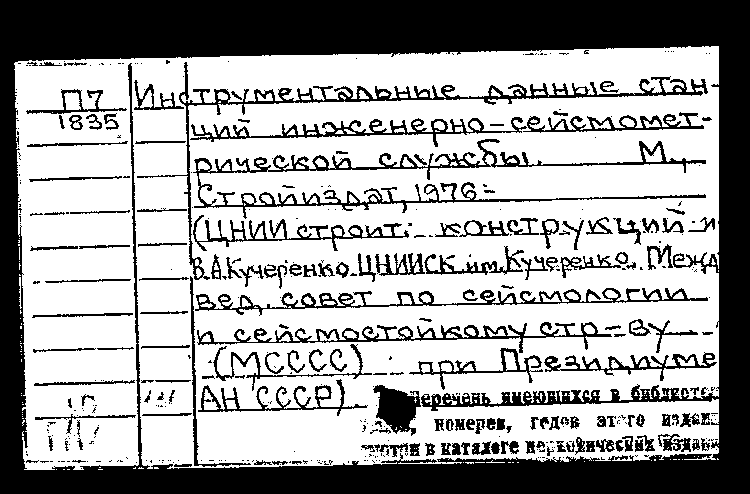 П7 Инструментальные данные стан-
1835 ций инженерно-сейсмомет-
рической службы. М.,
Стройиздат, 1976-
(ЦНИИ строит. конструкций и
В.А.Кучеренко ЦНИИСК им.Кучеренко. Межд
вед. совет по сейсмологии
и сейсмостойкому стр-ву
(МСССС) при Президиуме
АН СССР)
Перечень имеющихся в библиоте
номеров, годов этого издан
смотри в каталоге периодических издан